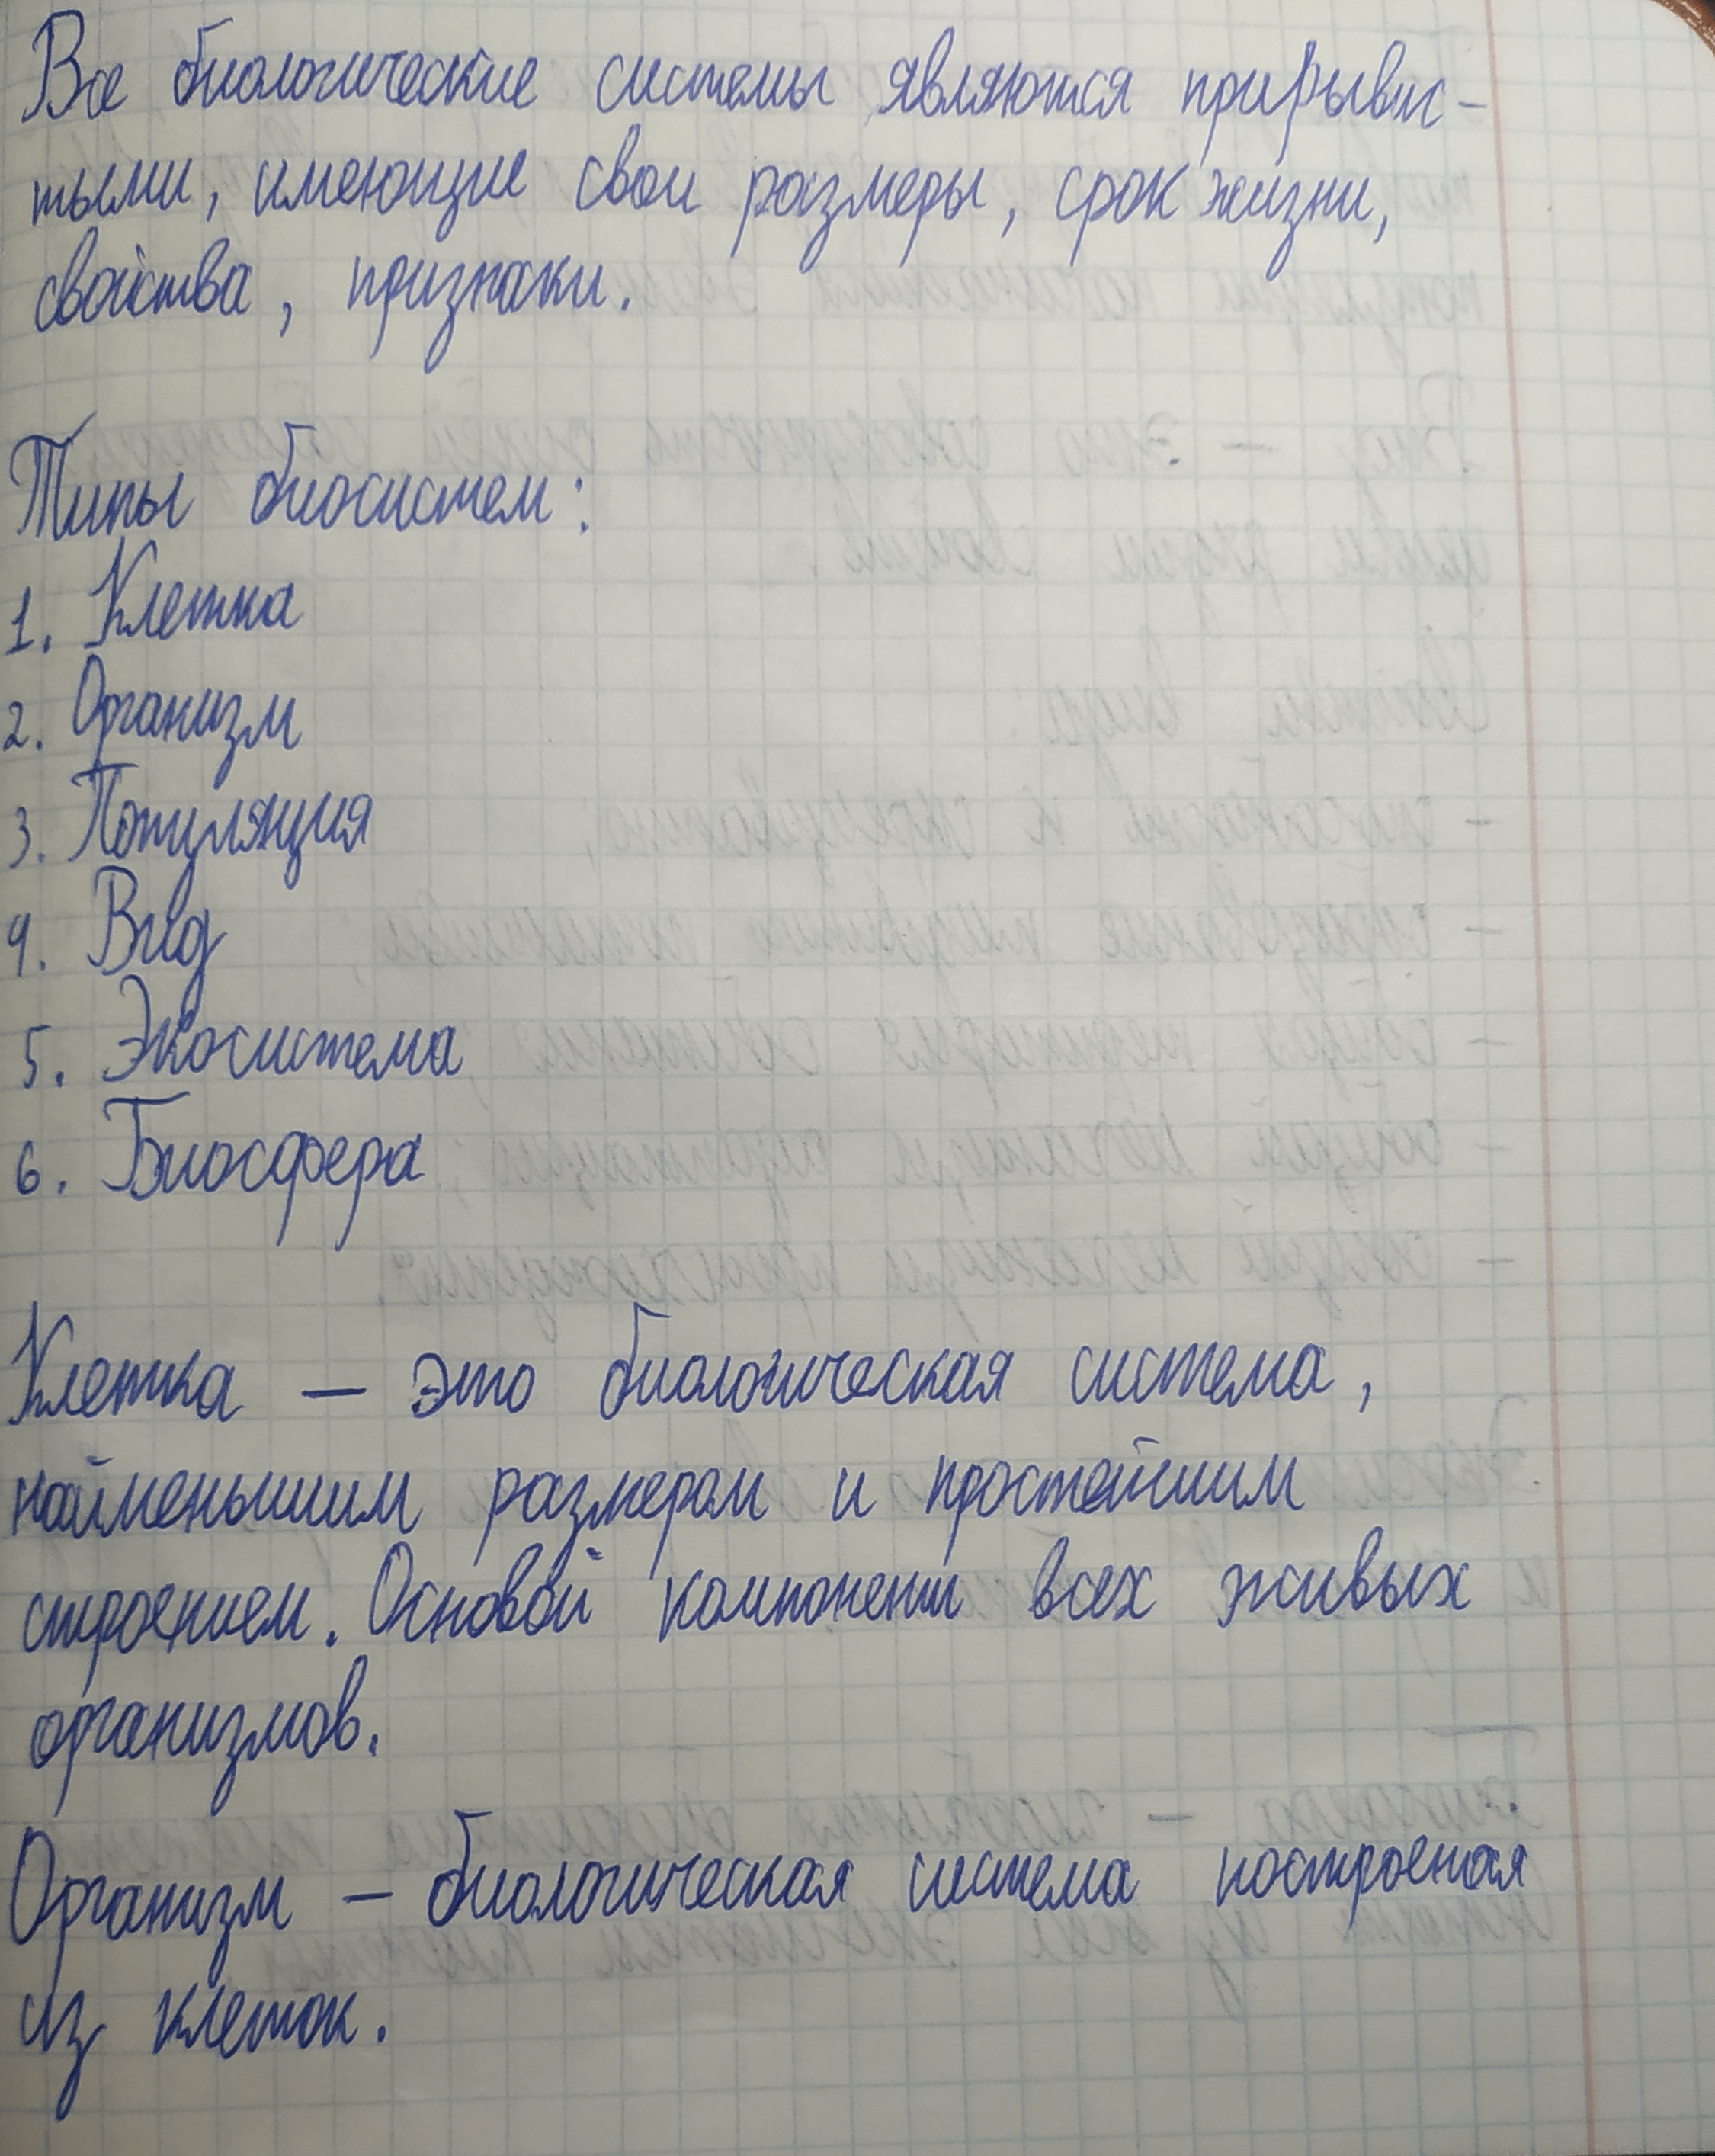 Все биологические системы являются прирывис-
тыми, имеющие свои размеры, срок жизни,
свойства, признаки.
Типы биосистем:
1. Клетка
2. Организм
3. Популяция
4. Вид
5. Экосистема
6. Биосфера
Клетка — это биологическая система,
найменьшим размером и простейшим
строением. Основой компонент всех живых
организмов.
Организм — биологическая система построеная
из клеток.